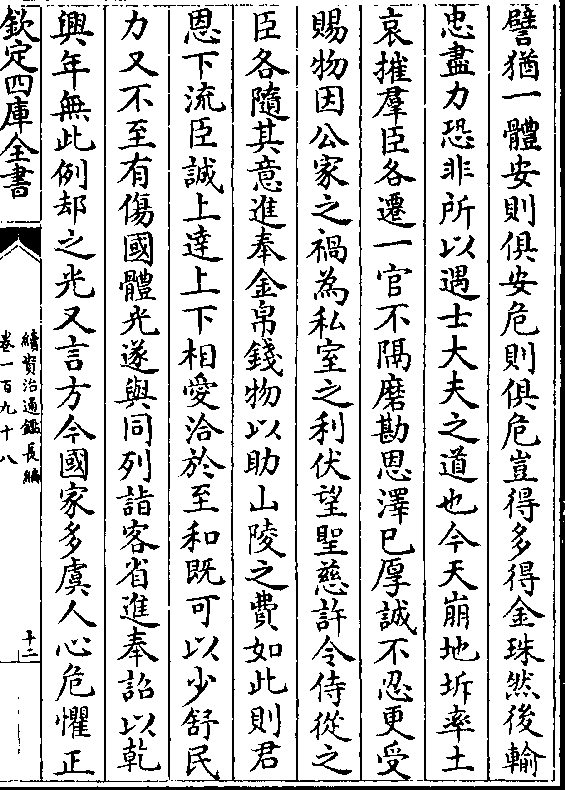 譬猶一體安則俱安危則俱危豈得多得金珠然後輸
忠盡力恐非所以遇士大夫之道也今天崩地坼率土
哀摧羣臣各遷一官不隔磨勘恩澤已厚誠不忍更受
賜物因公家之禍為私室之利伏望聖慈許令侍從之
臣各隨其意進奉金帛錢物以助山陵之費如此則君
恩下流臣誠上達上下相愛洽於至和既可以少舒民
力又不至有傷國體光遂與同列詣客省進奉詔以乾
興年無此例却之光又言方今國家多虞人心危懼正
欽定四庫全書
續資治通鑑長編
卷一百九十八
十二